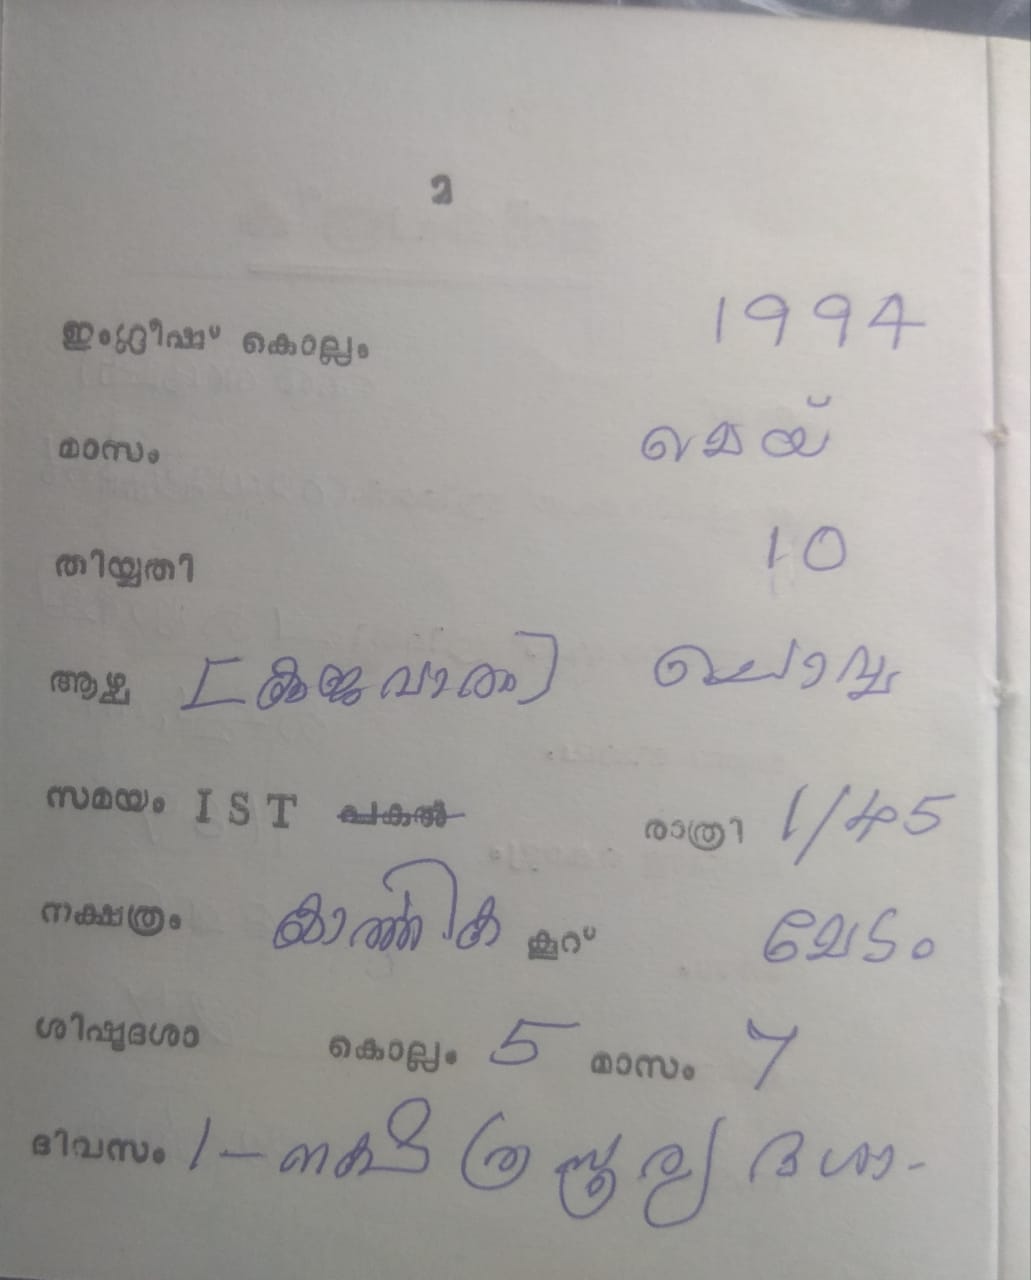 2
ഇംഗ്ലീഷ് കൊല്ലം 1994
മാസം മെയ്
തിയ്യതി 10
ആഴ്ച [കുജവാരം] ചൊവ്വ
സമയം IST പകൽ രാത്രി 1/45
നക്ഷത്രം കാർത്തിക കൂറ് മേടം
ശിഷ്ടദശാ കൊല്ലം 5 മാസം 7
ദിവസം 1 - നക്ഷത്ര സൂര്യ ദശാ -